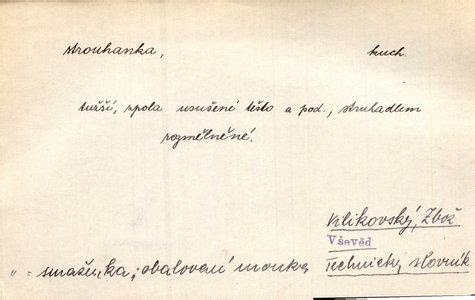 strouhanka, kuch.
tužší, zpola usušené těsto a pod., struhadlem
rozmělněné.
Klikovský, Zbož
Vševěd
„ = smaženka; obalovací mouka Technický slovník